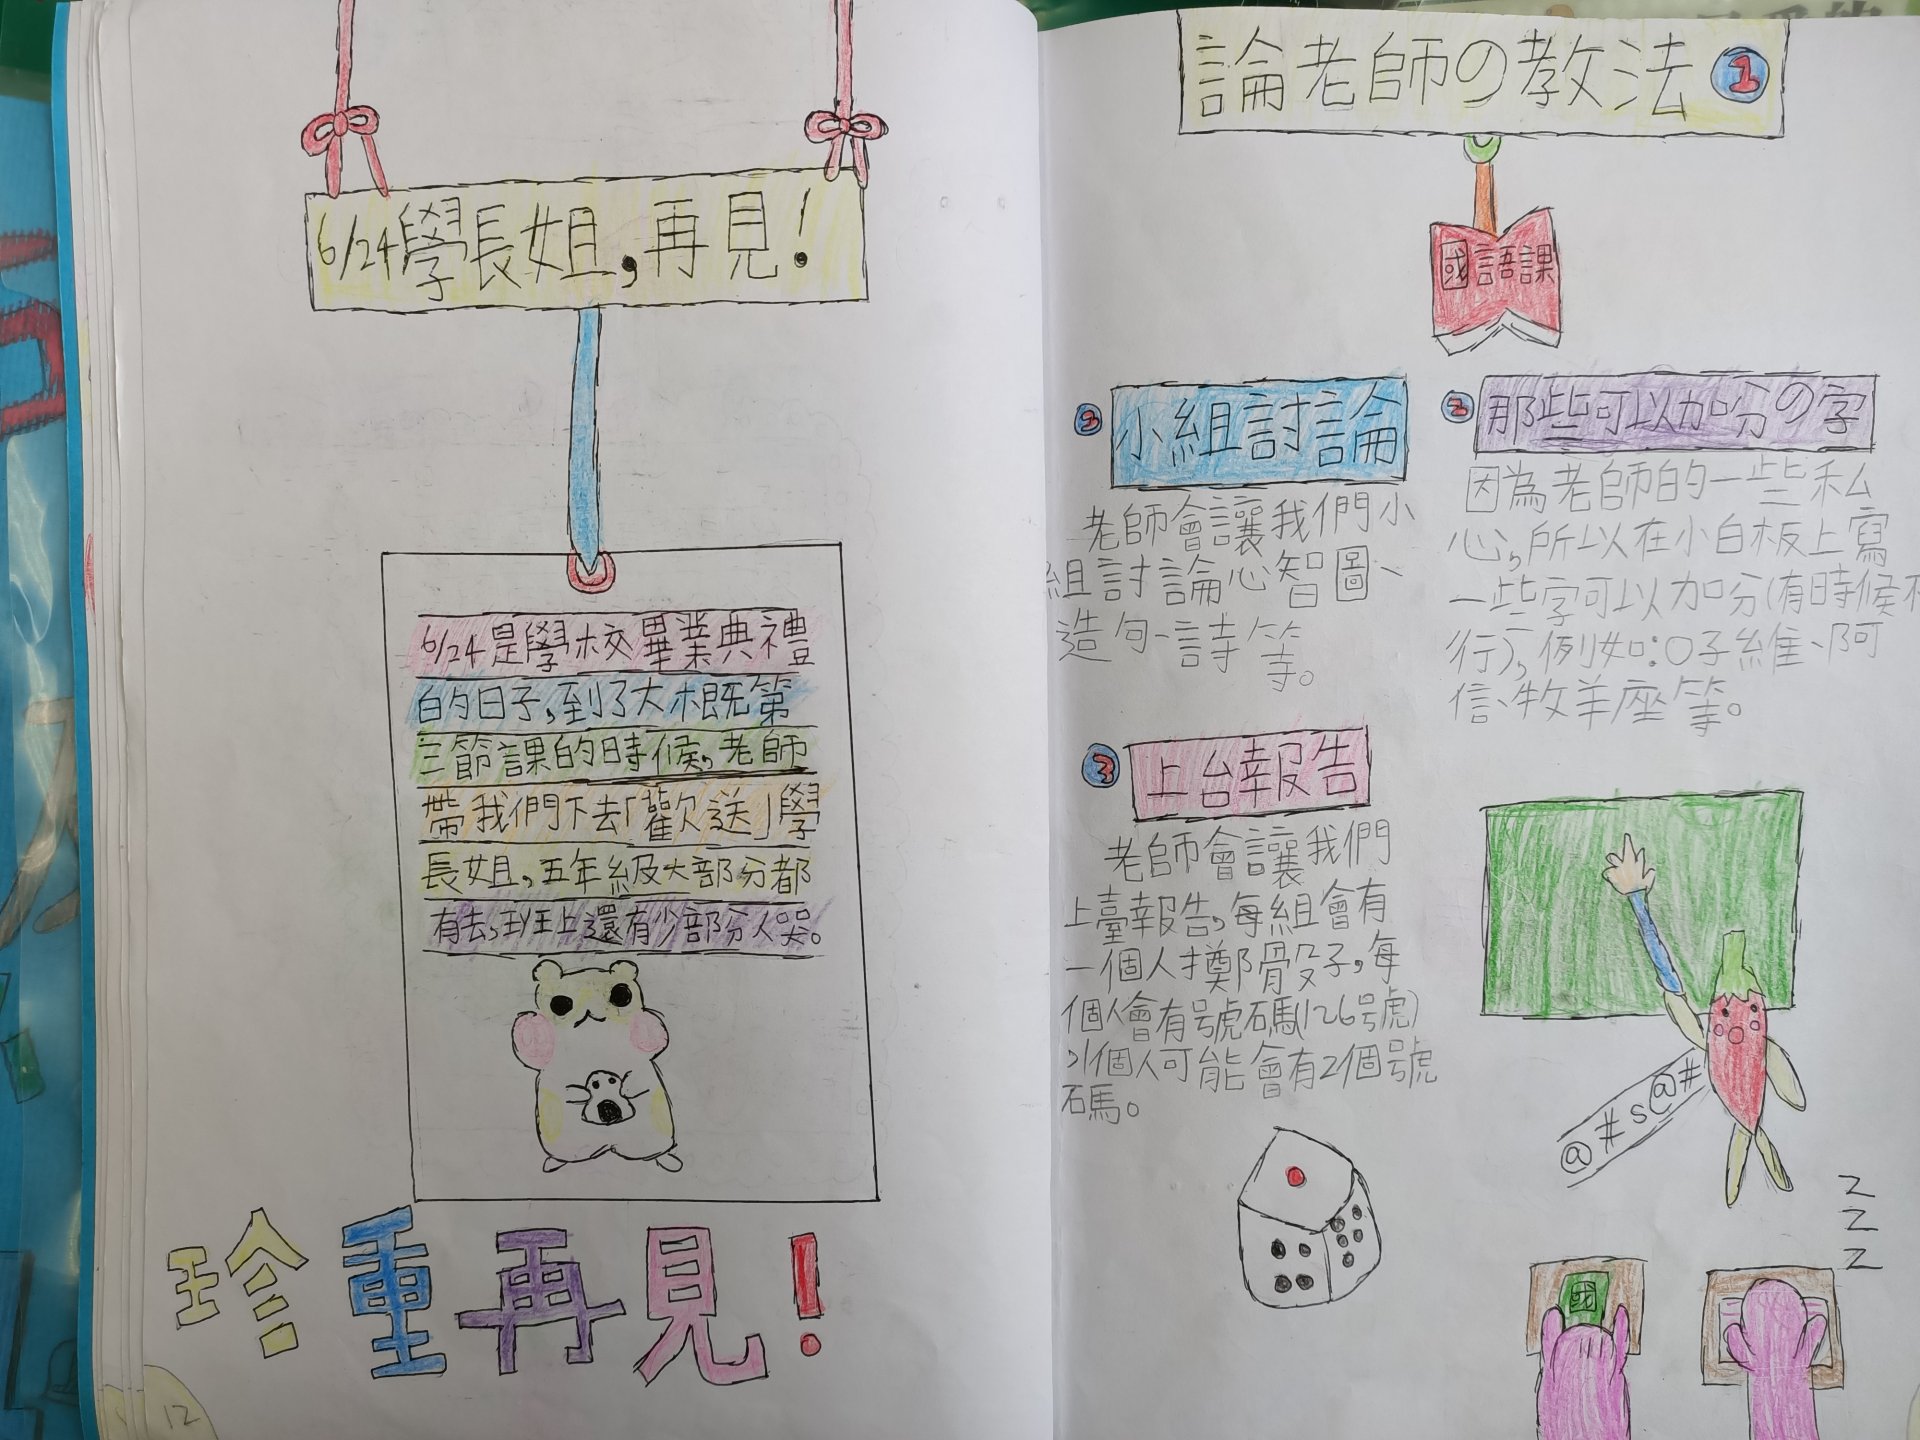 6/24學長姐,再見!
6/24是學校畢業典禮
的日子,到了大概第
三節課的時候,老師
帶我們下去「歡送」學
長姐,五年級大部分都
有去,班上還有少部分人哭。
珍重再見!
12
論老師の教法 1
國語課
小組討論
老師會讓我們小
組討論心智圖、
造句、詩等。
2 那些可以加分の字
因為老師的一些私
心,所以在小白板上寫
一些字可以加分(有時候不
行),例如:〇子維、阿
信、牧羊座等。
3 上台報告
老師會讓我們
上臺報告,每組會有
一個人擲骰子,每
個人會有號碼(126號)
1個人可能會有2個號
碼。
@#s@#
Z
Z
Z
國